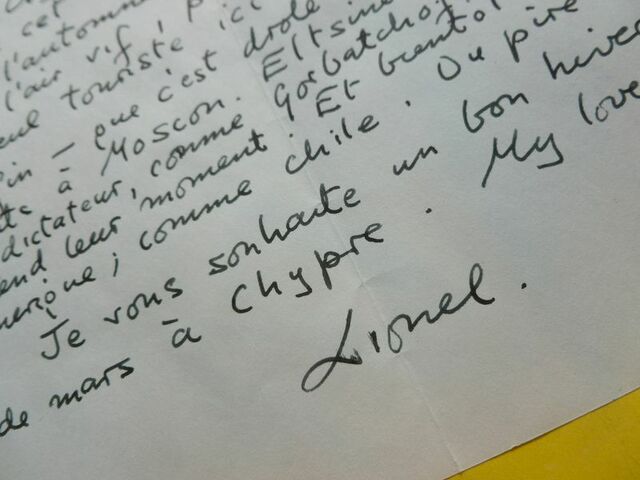 cet
l'automn
l'air vif, p
touriste ici
in – que c'est drole
à Moscou. Eltsine
dictateur, comme Gorbatchof
end leur moment. Et bientôt
mérique ; comme chile. Ou pire
Je vous souhaite un bon hiver
de mars à Chypre. My love
Lionel.